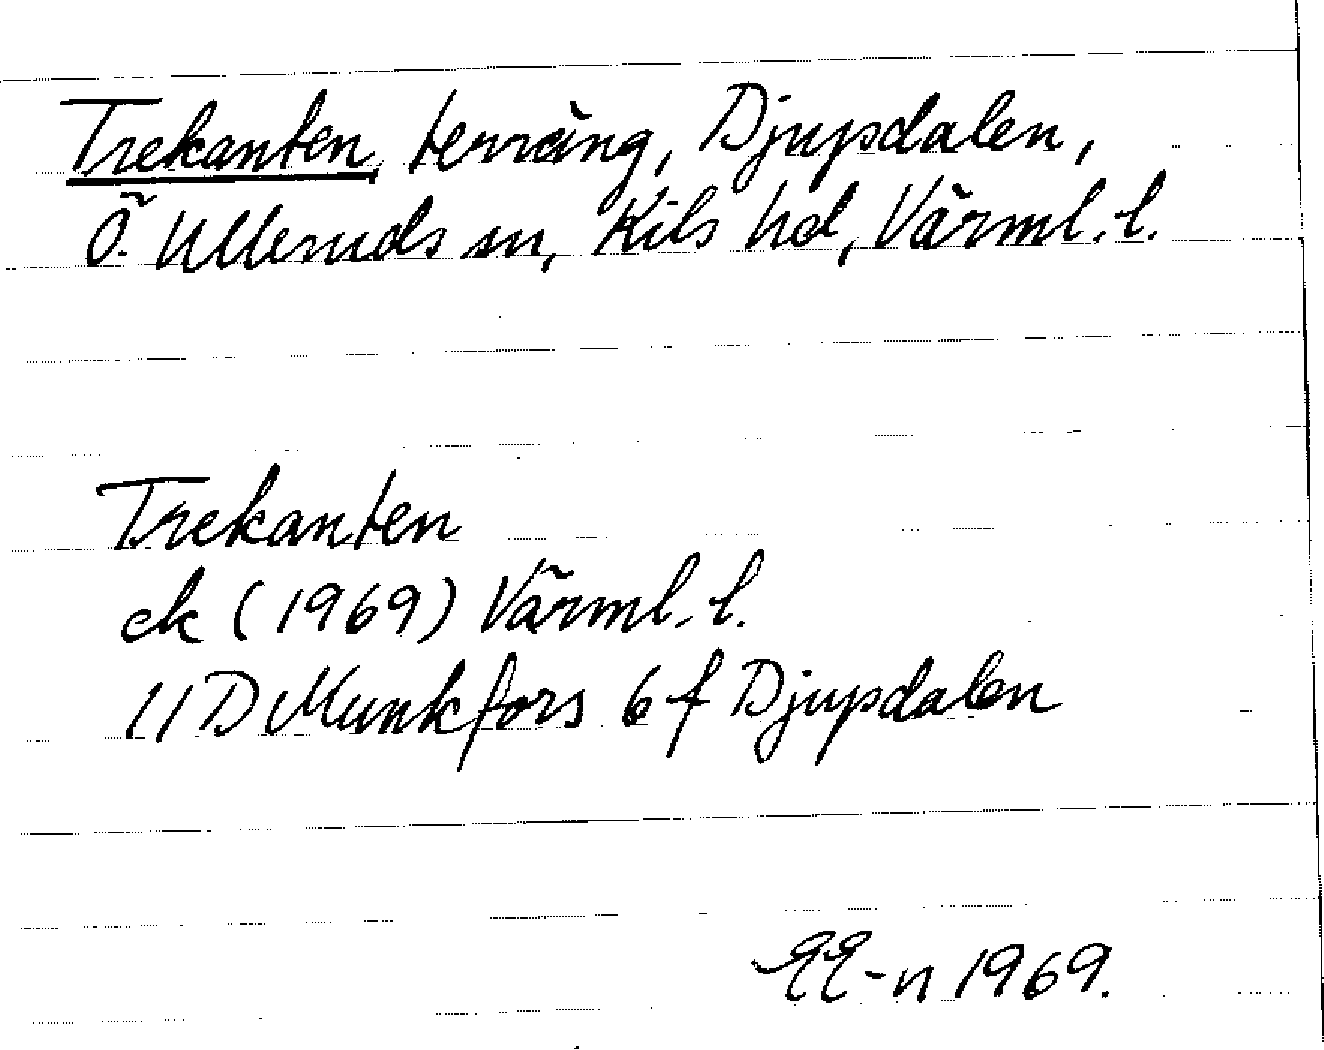 Trekanten, terräng, Djupdalen,
Ö. Ulleruds sn, Kils hd, Värml. l.
Trekanten
ek (1969) Värml. l.
11 D Munkfors 6 f Djupdalen
EE-n 1969.